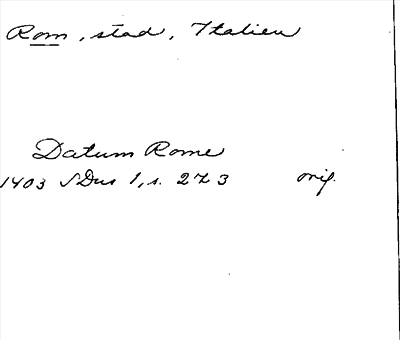 Rom, stad, Italien
Datum Rome
1403 SDns 1, s. 273 orig.